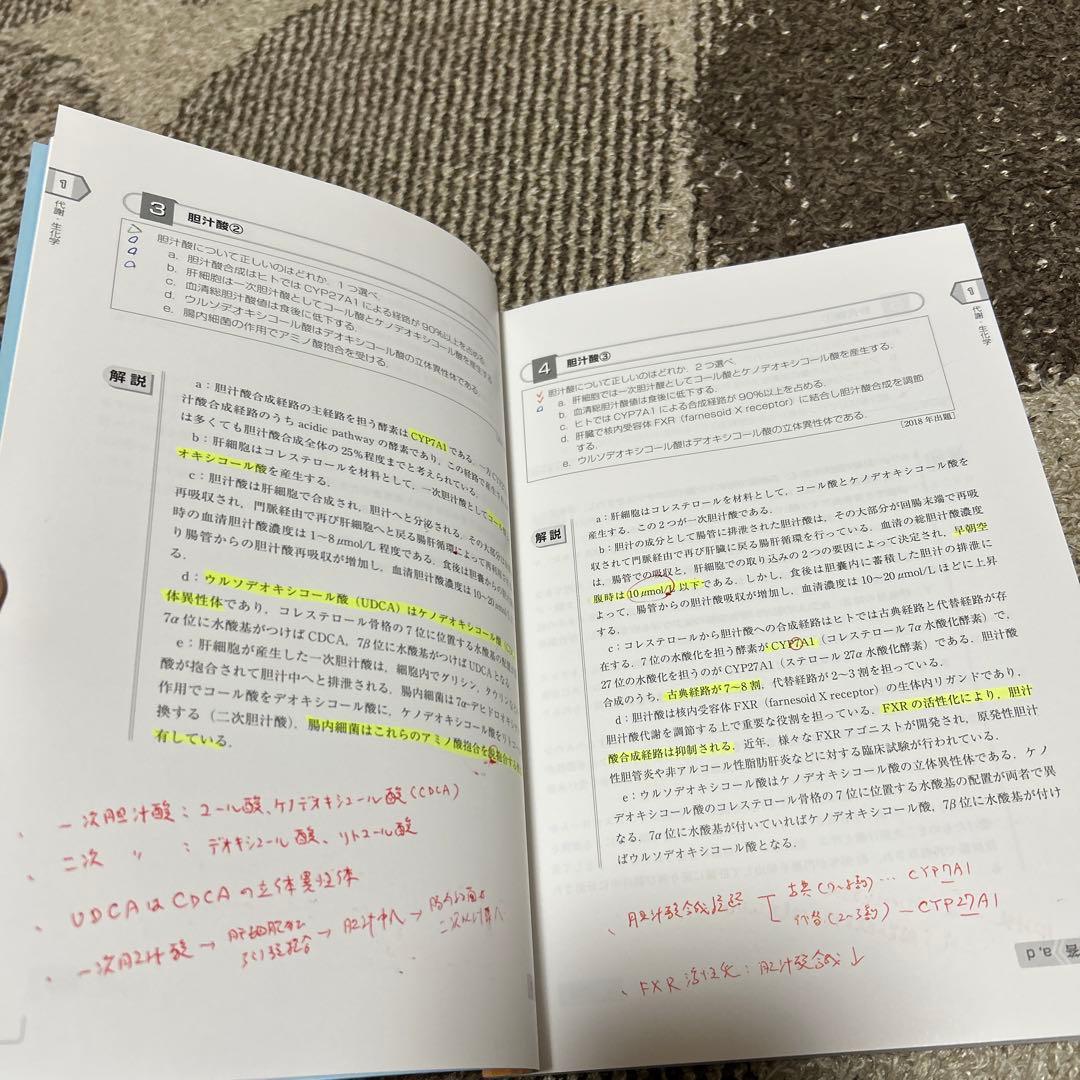 1
代謝・生化学
3 胆汁酸②
胆汁酸について正しいのはどれか．1つ選べ．
a．胆汁酸合成はヒトではCYP27A1による経路が90%以上を占める．
b．肝細胞は一次胆汁酸としてコール酸とケノデオキシコール酸を産生する
c．血清総胆汁酸値は食後に低下する．
d．ウルソデオキシコール酸はデオキシコール酸の立体異性体である．
e．腸内細菌の作用でアミノ酸抱合を受ける．
解説
a：胆汁酸合成経路の主経路を担う酵素はCYP7A1である．
汁酸合成経路のうちacidic pathwayの酵素であり，この経路で産生
は多くても胆汁酸合成全体の25%程度までと考えられている．
b：肝細胞はコレステロールを材料として，一次胆汁酸としてコール
オキシコール酸を産生する．
c：胆汁酸は肝細胞で合成され，胆汁へと分泌される．その大部分
再吸収され，門脈経由で再び肝細胞へと戻る腸肝循環によって再利用
時の血清胆汁酸濃度は1〜8μmol/L程度である．食後は胆嚢からの胆
り腸管からの胆汁酸再吸収が増加し，血清胆汁酸濃度は10〜20μmol/
る．
d：ウルソデオキシコール酸（UDCA）はケノデオキシコール酸
体異性体であり，コレステロール骨格の7位に位置する水酸基の
7α位に水酸基がつけばCDCA，7β位に水酸基がつけばUDCAとなる．
e：肝細胞が産生した一次胆汁酸は，細胞内でグリシン，タウリン
酸が抱合されて胆汁中へと排泄される．腸内細菌は7α-デヒドロ
作用でコール酸をデオキシコール酸に，ケノデオキシコール酸をリトコー
換する（二次胆汁酸）．腸内細菌はこれらのアミノ酸抱合を脱抱合する
有している．
、一次胆汁酸：コール酸、ケノデオキシコール酸(CDCA)
、二次 〃 ：デオキシコール酸、リトコール酸
、UDCAはCDCAの立体異性体
、一次胆汁酸→肝細胞内でアミノ酸抱合→胆汁中へ→腸内細菌で二次胆汁酸へ
1
代謝・生化学
4 胆汁酸③
胆汁酸について正しいのはどれか．2つ選べ．
a．肝細胞では一次胆汁酸としてコール酸とケノデオキシコール酸を産生する．
b．血清総胆汁酸値は食後に低下する．
c．ヒトではCYP7A1による合成経路が90%以上を占める．
d．肝臓で核内受容体FXR（farnesoid X receptor）に結合し胆汁酸合成を調節
する．
e．ウルソデオキシコール酸はデオキシコール酸の立体異性体である．
［2018年出題］
解説
a：肝細胞はコレステロールを材料として，コール酸とケノデオキシコール酸を
産生する．この2つが一次胆汁酸である．
b：胆汁の成分として腸管に排泄された胆汁酸は，その大部分が回腸末端で再吸
収されて門脈経由で再び肝臓に戻る腸肝循環を行っている．血清の総胆汁酸濃度
は，腸管での吸収と，肝細胞での取り込みの2つの要因によって決定され，早朝空
腹時は10μmol/L以下である．しかし，食後は胆嚢内に蓄積した胆汁の排泄に
よって，腸管からの胆汁酸吸収が増加し，血清濃度は10〜20μmol/Lほどに上昇
する．
c：コレステロールから胆汁酸への合成経路はヒトでは古典経路と代替経路が存
在する．7位の水酸化を担う酵素がCYP7A1（コレステロール7α水酸化酵素）で，
27位の水酸化を担うのがCYP27A1（ステロール27α水酸化酵素）である．胆汁酸
合成のうち，古典経路が7〜8割，代替経路が2〜3割を担っている．
d：胆汁酸は核内受容体FXR（farnesoid X receptor）の生体内リガンドであり，
胆汁酸代謝を調節する上で重要な役割を担っている．FXRの活性化により，胆汁
酸合成経路は抑制される．近年，様々なFXRアゴニストが開発され，原発性胆汁
性胆管炎や非アルコール性脂肪肝炎などに対する臨床試験が行われている．
e：ウルソデオキシコール酸はケノデオキシコール酸の立体異性体である．ケノ
デオキシコール酸のコレステロール骨格の7位に位置する水酸基の配置が両者で異
なる．7α位に水酸基が付いていればケノデオキシコール酸，7β位に水酸基が付け
ばウルソデオキシコール酸となる．
、胆汁酸合成経路 古典(7〜8割)…CYP7A1
代替(2〜3割)―CYP27A1
、FXR活性化：胆汁酸合成↓
答 a,d